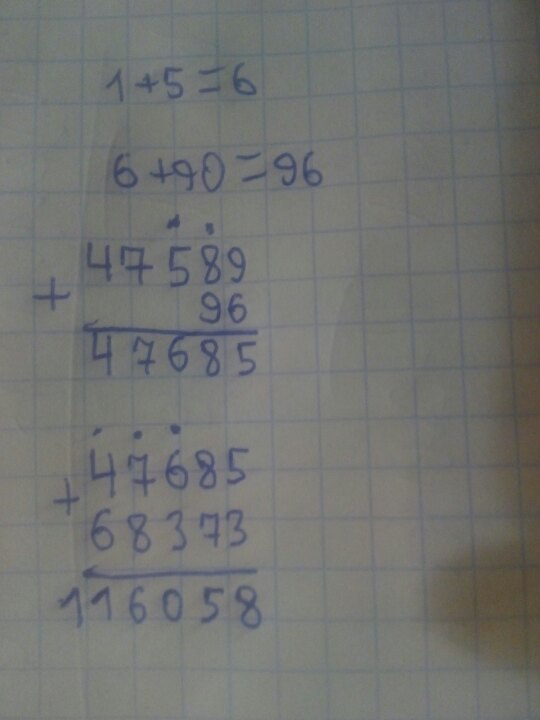 1+5=6
6+90=96
47589
+
96
47685
47685
+
68373
116058